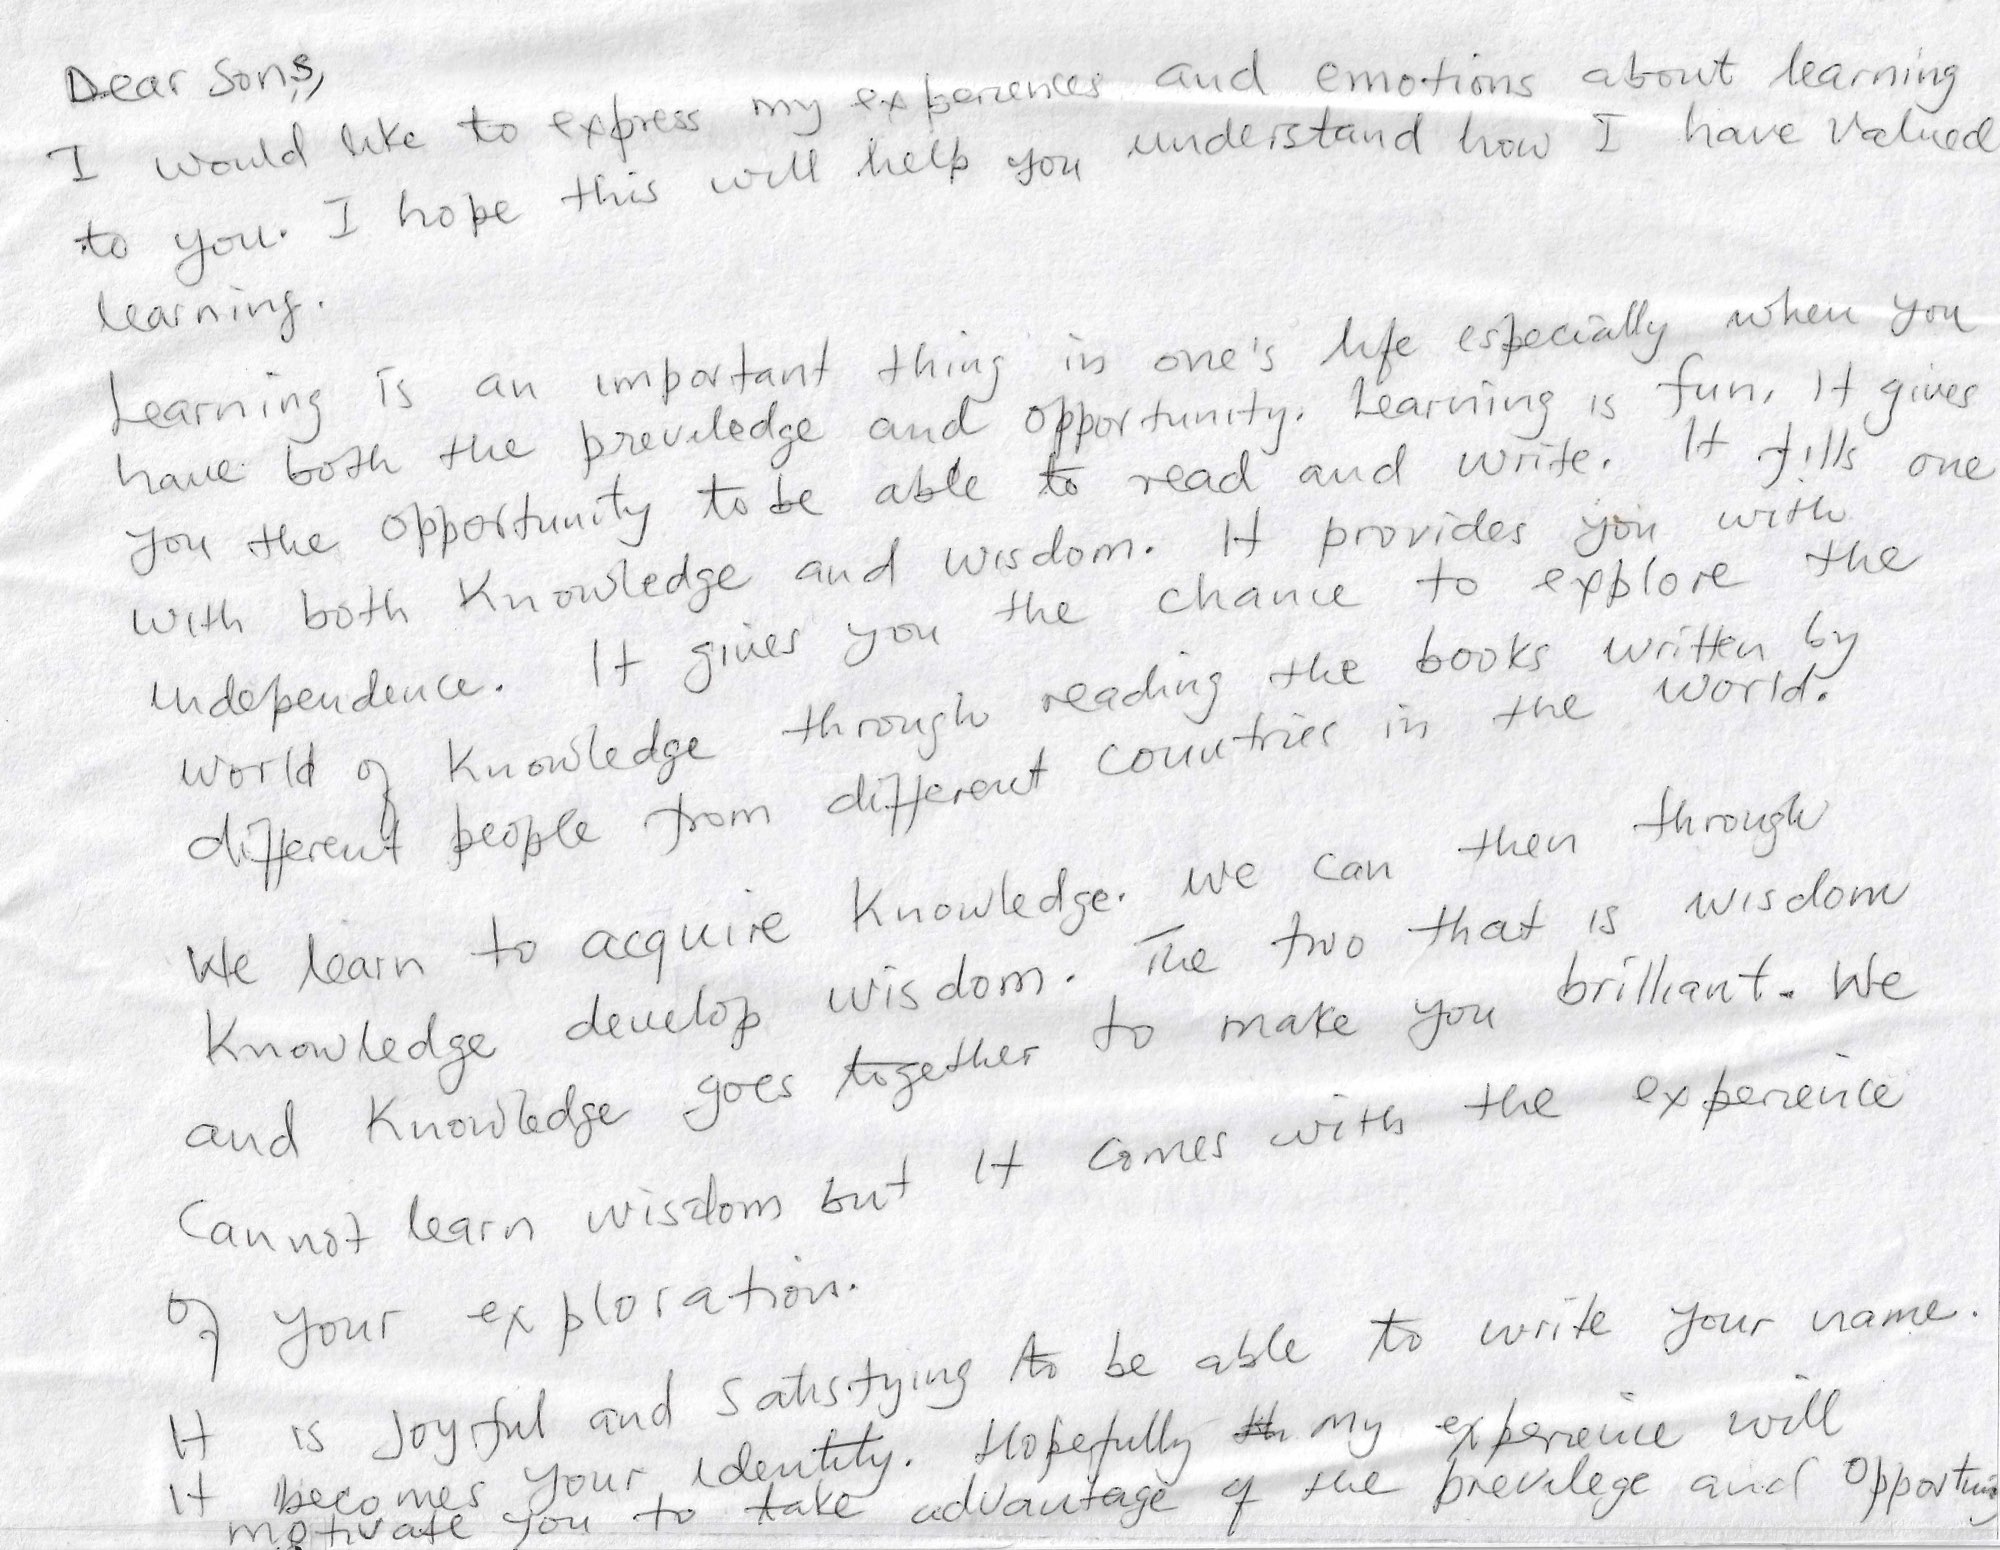 Dear Sons,
I would like to express my experiences and emotions about learning
to you. I hope this will help you understand how I have valued
learning.
Learning is an important thing in one's life especially when you
have both the preveledge and opportunity. Learning is fun. It gives
you the opportunity to be able to read and write. It fills one
with both Knowledge and wisdom. It provides you with
independence. It gives you the chance to explore the
world of Knowledge through reading the books written by
different people from different countries in the world.
We learn to acquire Knowledge. We can then through
Knowledge develop wisdom. The two that is wisdom
and Knowledge goes together to make you brilliant. We
Cannot learn wisdom but it comes with the experience
of your exploration.
It is joyful and satisfying to be able to write your name.
It becomes your identity. Hopefully my experience will
motivate you to take advantage of the prevelege and opportuniy